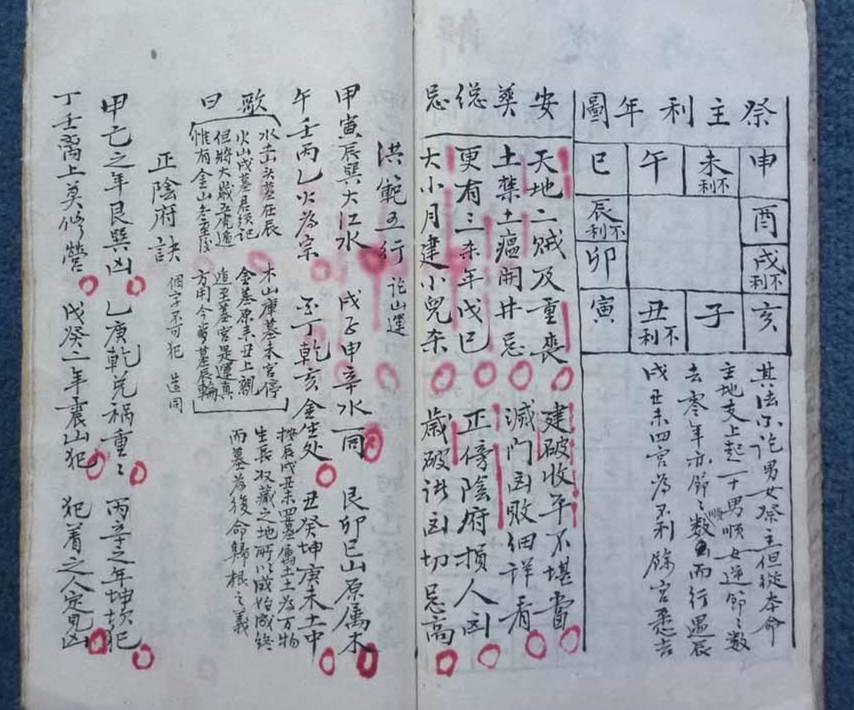 祭主利年圖
申
未不利
午
巳
酉
辰不利
戌不利
卯
亥
子
丑不利
寅
其法不論男女祭主但從本命
主地支上起一十男順女逆節々數
去零年亦節々數順而行遇辰
戌丑未四宮為不利餘宮悉吉
安葬總忌
天地二賊及重喪 建破收平不堪當
土禁土瘟開井忌 滅門凶敗細詳看
更有三杀年戊巳 正傍陰府損人凶
大小月建小兒杀 歲破諸凶切忌高
洪範五行論山運
甲寅辰巽大江水 戌子申辛水一同 艮卯巳山原屬木
午壬丙乙火為宗 酉丁乾亥金生处 丑癸坤庚未土中
歌曰
水土山头墓在辰 木山庫墓未宮停
火山戌墓君须記 金墓原来丑上親
但將大歲五虎遁 遁至墓宮是運真
惟有金山冬至後 方用今歲墓辰輪
按辰戌丑未四墓屬土土為万物
生長收藏之地所以成始成終
而墓為復命歸根之義
正陰府訣 個字不可犯 造同
甲己之年艮巽凶 乙庚乾兑祸重々 丙辛之年坤坎犯
丁壬离上莫修營 戊癸二年震山犯 犯着之人定見凶